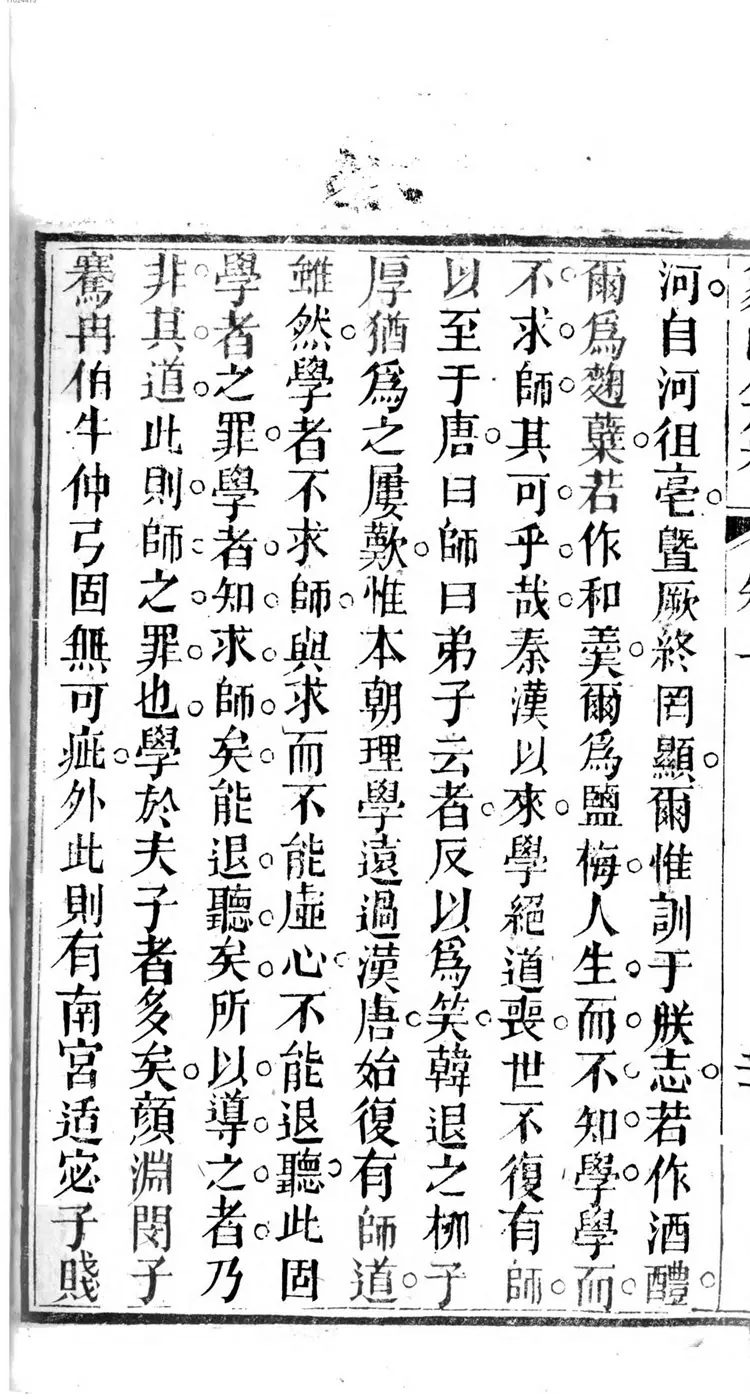 河自河徂亳暨厥終罔顯爾惟訓于朕志若作酒醴
爾爲麴糵若作和羹爾爲鹽梅人生而不知學學而
不求師其可乎哉秦漢以來學絕道喪世不復有師
以至于唐曰師曰弟子云者反以爲笑韓退之柳子
厚猶爲之屢歎惟本朝理學遠過漢唐始復有師道
雖然學者不求師與求而不能虛心不能退聽此固
學者之罪學者知求師矣能退聽矣所以導之者乃
非其道此則師之罪也學於夫子者多矣顏淵閔子
騫冉伯牛仲弓固無可疵外此則有南宮适宓子賤